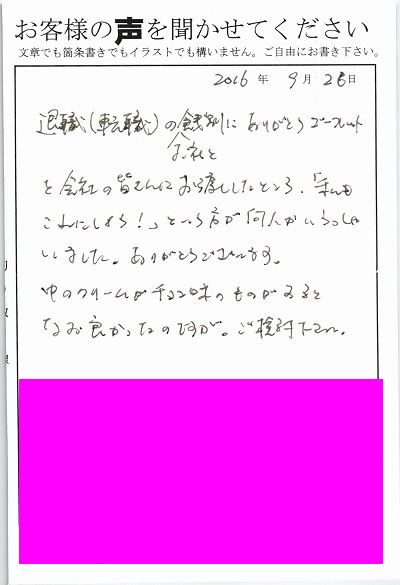 お客様の声を聞かせてください
文章でも箇条書きでもイラストでも構いません。ご自由にお書き下さい。
2016年 9月 26日
退職(転職)の餞別に ありがとうゴーフレット
会社と
を会社の皆さんにお渡ししたところ、「私も
これにしよう!」という方が何人かいらっしゃ
いました。ありがとうございます。
中のクリームがチョコ味のものがあると
なお良かったのですが。ご検討下さい。